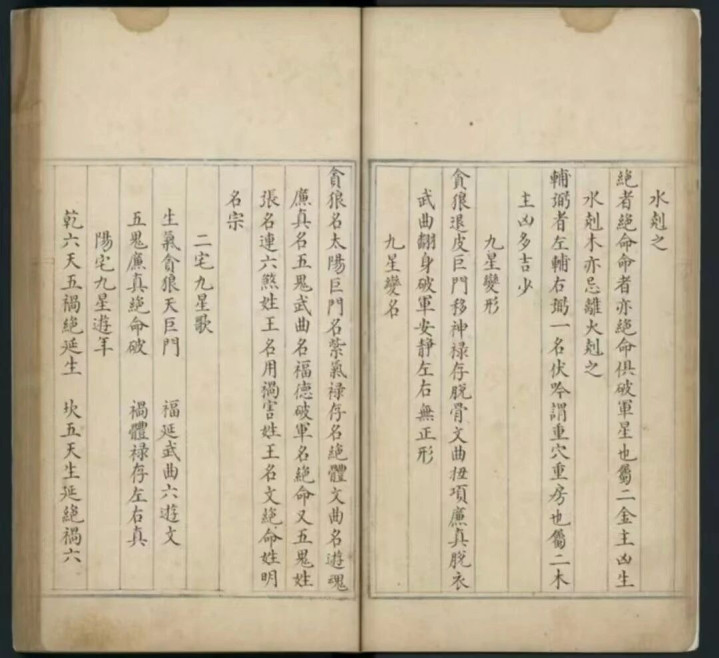 水剋之
絕者絕命命者亦絕命俱破軍星也屬二金主凶生
水剋木亦忌離火剋之
輔弼者左輔右弼一名伏吟謂重穴重房也屬二木
主凶多吉少
九星變形
貪狼退皮巨門移神祿存脫骨文曲扭項廉真脫衣
武曲翻身破軍安靜左右無正形
九星變名
貪狼名太陽巨門名紫氣祿存名絕體文曲名遊魂
廉真名五鬼武曲名福德破軍名絕命又五鬼姓
張名連六煞姓王名用禍害姓王名文絕命姓明
名宗
二宅九星歌
生氣貪狼天巨門 福延武曲六遊文
五鬼廉真絕命破 禍體祿存左右真
陽宅九星遊年
乾六天五禍絕延生 坎五天生延絕禍六